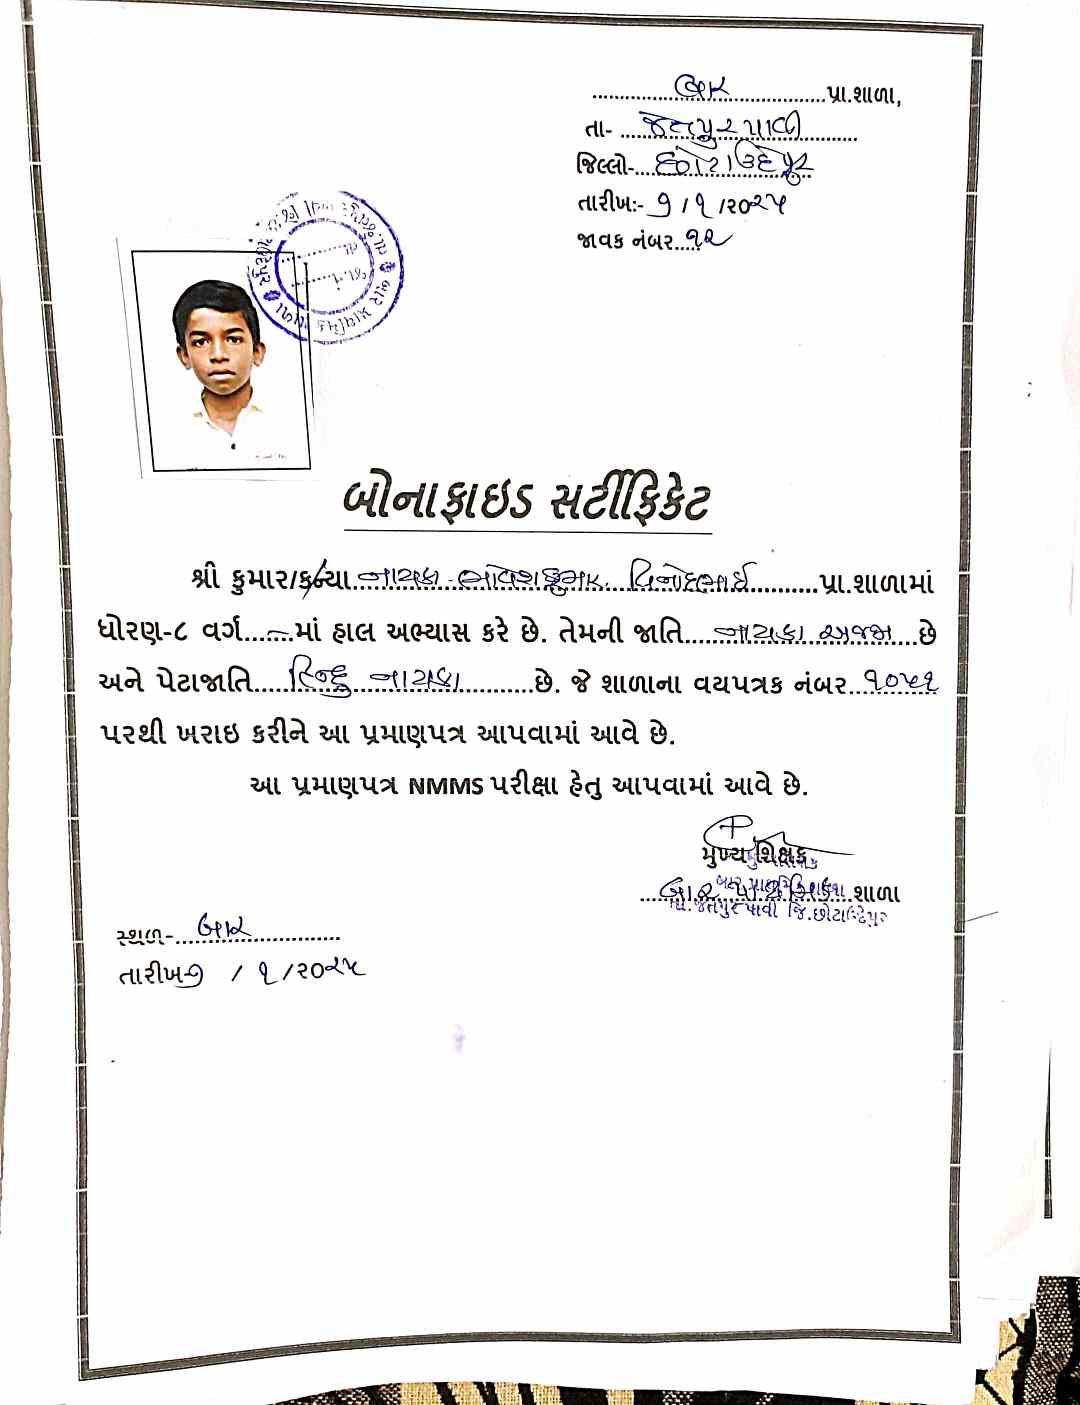 બાર પ્રા.શાળા,
તા- જેતપુર પાવી
જિલ્લો- છોટાઉદેપુર
તારીખ:- ૭ / ૧ /૨૦૨૫
જાવક નંબર ૧૨
બોનાફાઇડ સર્ટીફિકેટ
શ્રી કુમાર/કન્યા નાયકા ભાવેશકુમાર વિનોદભાઈ પ્રા.શાળામાં
ધોરણ-૮ વર્ગ.....માં હાલ અભ્યાસ કરે છે. તેમની જાતિ નાયકા અજજા છે
અને પેટાજાતિ હિન્દુ નાયકા છે. જે શાળાના વયપત્રક નંબર ૧૦૫૧
પરથી ખરાઇ કરીને આ પ્રમાણપત્ર આપવામાં આવે છે.
આ પ્રમાણપત્ર NMMS પરીક્ષા હેતુ આપવામાં આવે છે.
મુખ્ય શિક્ષક
બાર પ્રાથમિક શાળા
તા.જેતપુર પાવી જિ.છોટાઉદેપુર
સ્થળ- બાર
તારીખ ૭ / ૧ /૨૦૨૫